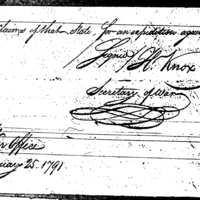 claims of that State, for an expedition again
Signed H. Knox
Secretary of War
Office
uary 25. 1791